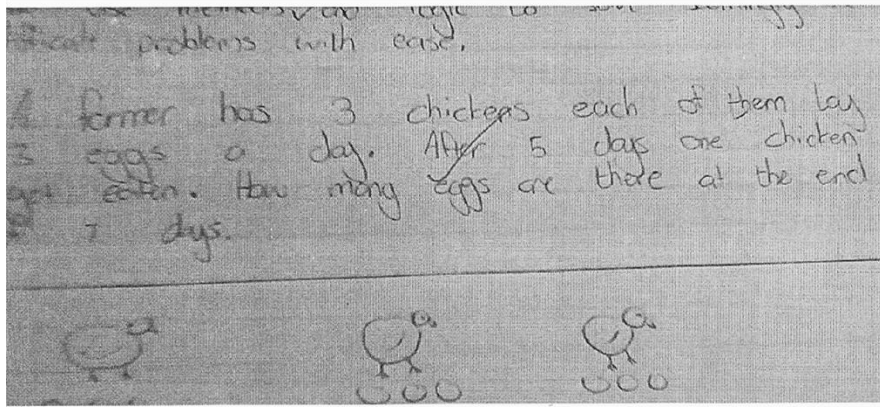 use numbers and logic to
problems with ease.
A farmer has 3 chickens each of them lay
3 eggs a day. After 5 days one chicken
get eaten. How many eggs are there at the end
7 days.